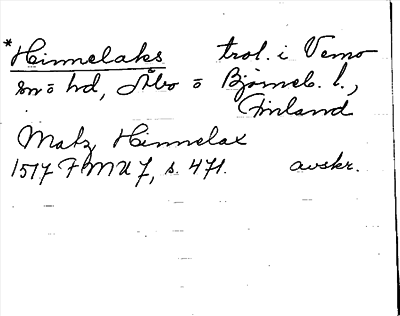 *Hinnelaks trol. i Vemo
sn o hd, Åbo o Björneb. l.,
Finland
Matz Hinnelax
1517 FMU 7, s. 471. avskr.